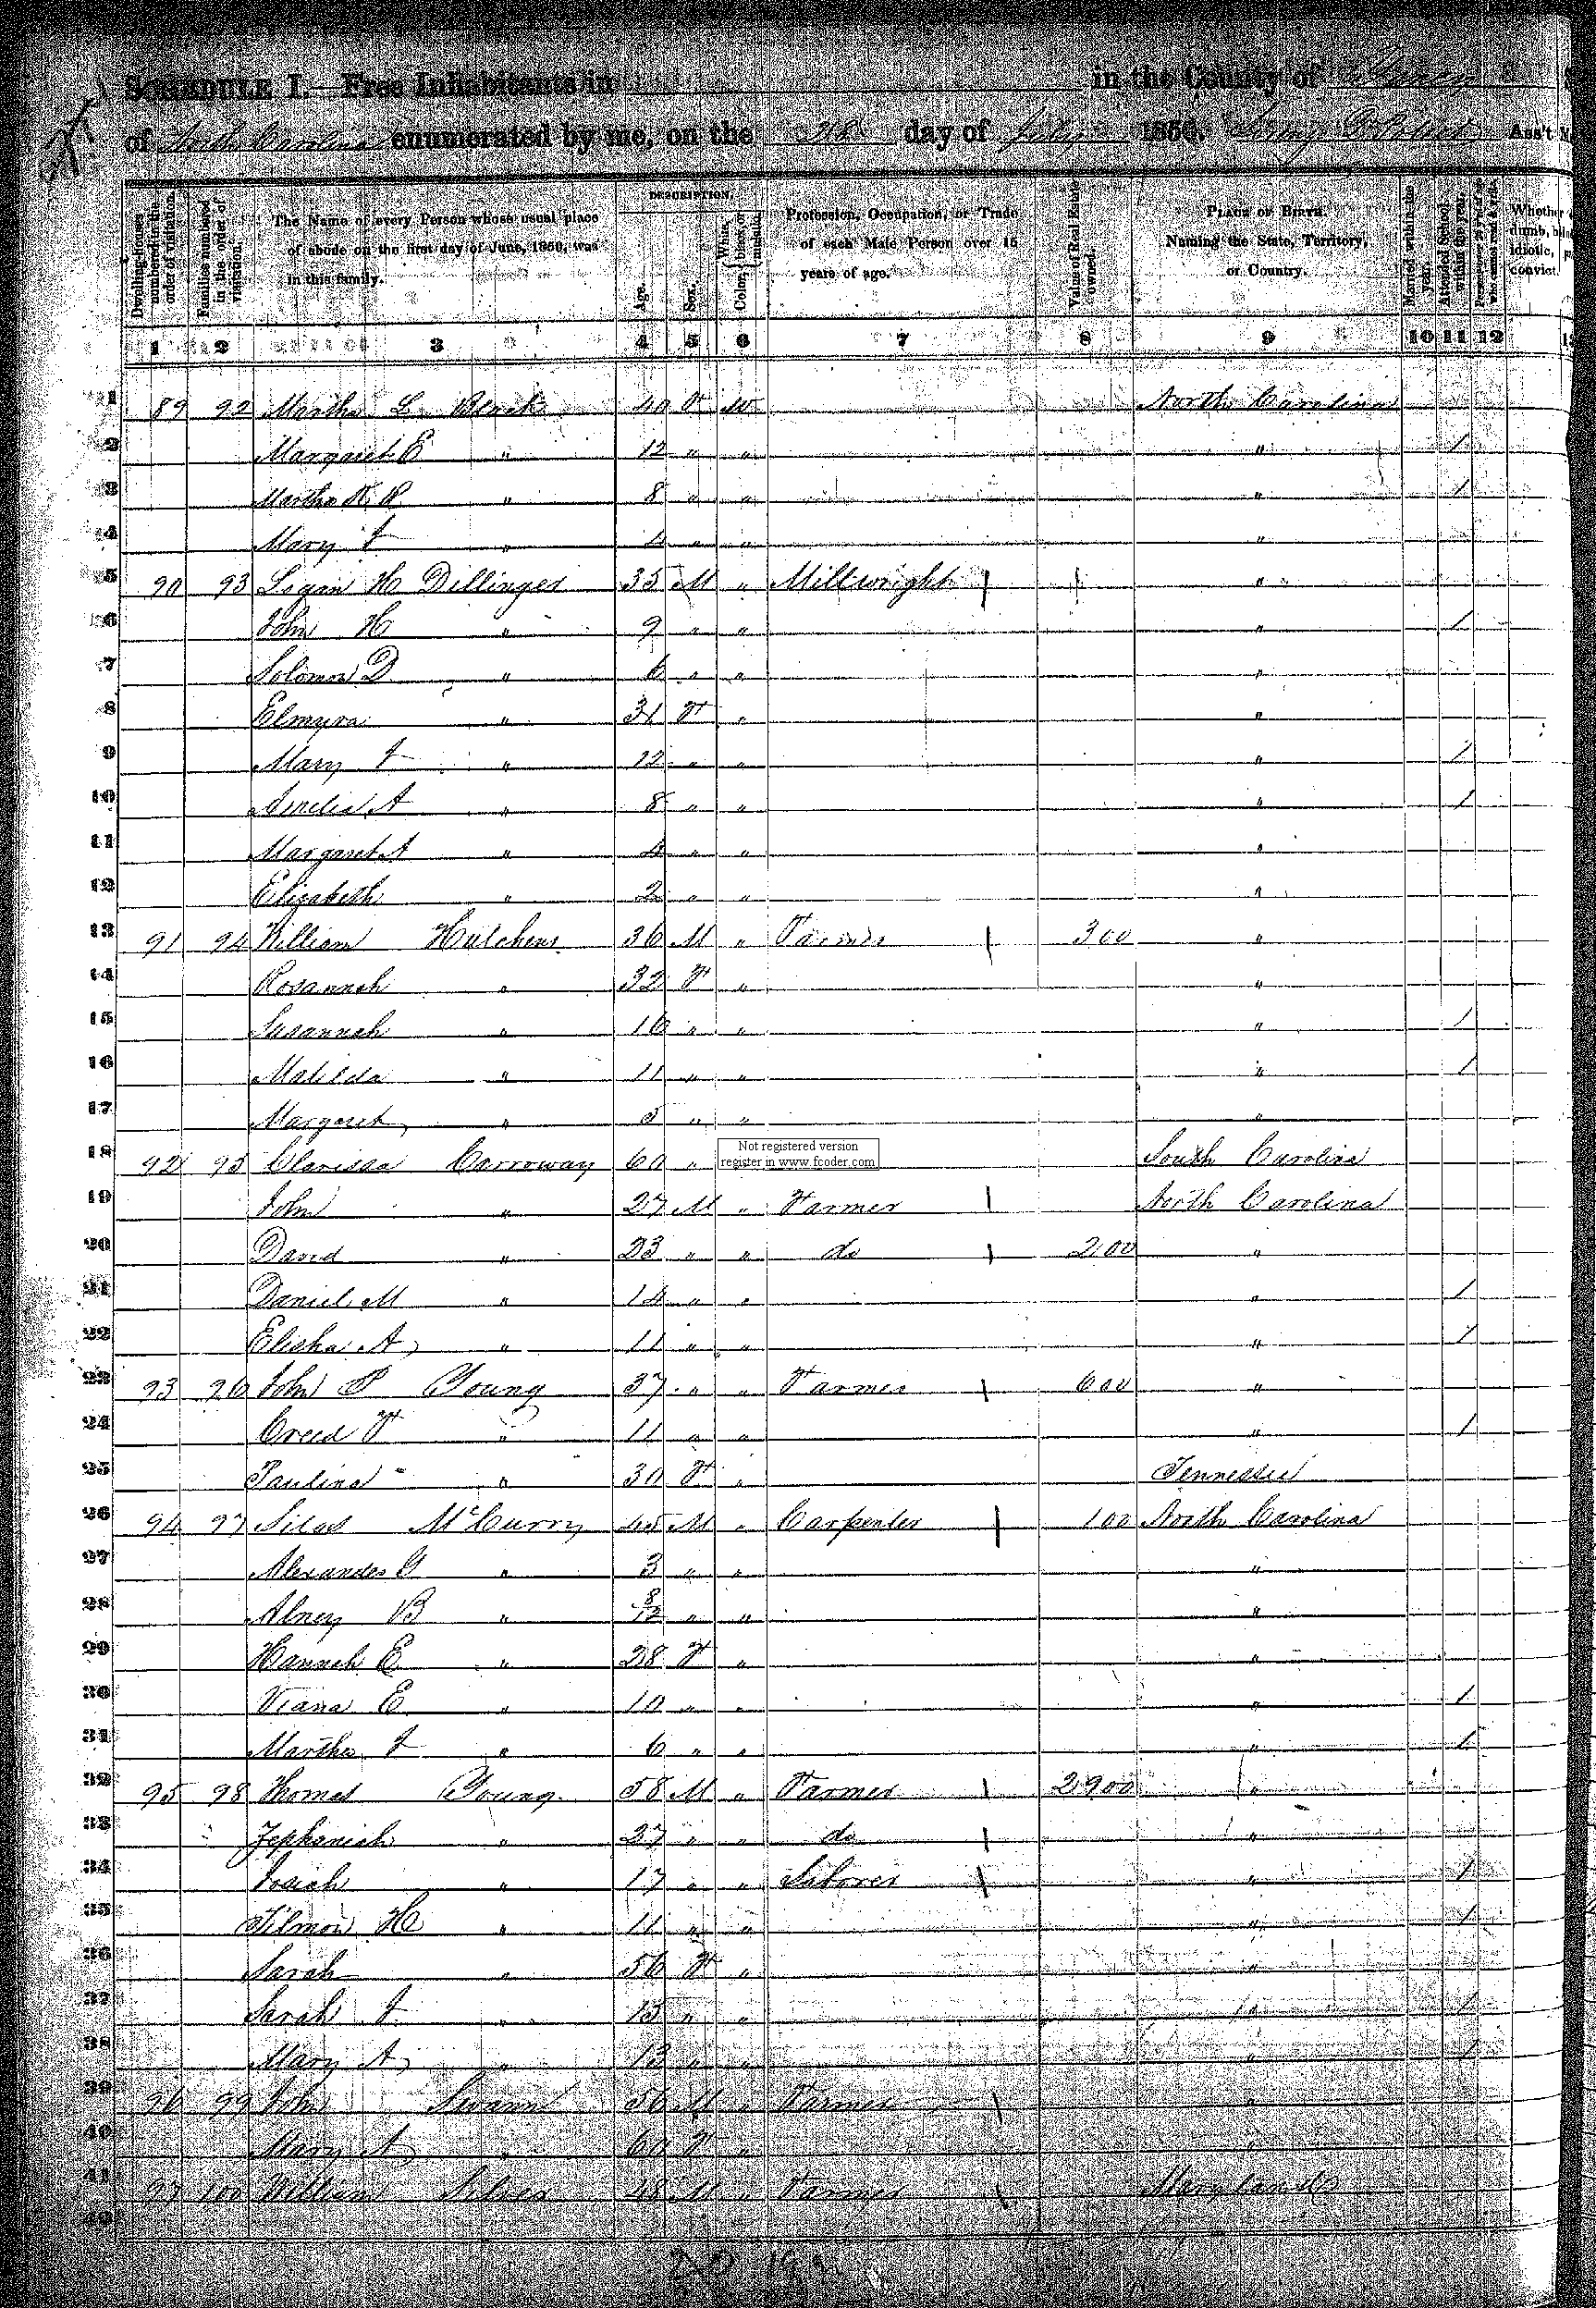 SCHEDULE I.—Free Inhabitants in in the County of Yancey
of North Carolina enumerated by me, on the day of July 1850. Ass't
Dwelling-houses numbered in the order of visitation.
Families numbered in the order of visitation.
The Name of every Person whose usual place of abode on the first day of June, 1850, was in this family.
DESCRIPTION.
Age.
Sex.
Color, White, black or mulatto.
Profession, Occupation, or Trade of each Male Person over 15 years of age.
Value of Real Estate owned.
PLACE OF BIRTH. Naming the State, Territory, or Country.
Married within the year.
Attended School within the year.
Persons over 20 y'rs of age who cannot read & write.
Whether dumb, idiotic, convict.
1 2 3 4 5 6 7 8 9 10 11 12
1 89 92 Martha L 40 F W North Carolina
2 Margaret E " 12 " " " 1
3 Martha R " 8 " " " 1
4 Mary " 4 " " "
5 90 93 Logan H Dillinger 35 M " Millwright "
6 John H " 9 " " " 1
7 Solomon D " 6 " " "
8 Elmyra " 31 F " "
9 Mary " 12 " " " 1
10 Amelia A " 8 " " " 1
11 Margaret A " 4 " " "
12 Elizabeth " 2 " " "
13 91 94 William Hutchens 36 M " Farmer 300 "
14 Rosannah " 32 F " "
15 Susannah " 16 " " " 1
16 Matilda " 11 " " " 1
17 Margaret " 5 " " "
18 92 95 Clarissa Carroway 60 " South Carolina
Not registered version
register in www.fcoder.com
19 John " 27 M " Farmer North Carolina
20 David " 23 " " do 200 "
21 Daniel M " 14 " " " 1
22 Elisha A " 11 " " " 1
23 93 96 John P Young 37 " " Farmer 600 "
24 Creed F " 11 " " " 1
25 Paulina " 30 F " Tennessee
26 94 97 Silas McCurry 45 M " Carpenter 100 North Carolina
27 Alexander G " 3 " " "
28 Abney B " 8/12 " " "
29 Hannah E " 28 F " "
30 Viana E " 10 " " " 1
31 Martha " 6 " " " 1
32 95 98 Thomas Young 58 M " Farmer 2900 "
33 Zephaniah " 27 " " do "
34 Josiah " 17 " " Laborer " 1
35 Tilmon H " 11 " " " 1
36 Sarah " 56 F " "
37 Sarah " 15 " " " 1
38 Mary A " 13 " " " 1
39 96 99 John Swann 56 M " Farmer "
40 Mary A " 60 F " "
41 97 100 William Silver 48 M " Farmer Maryland
42